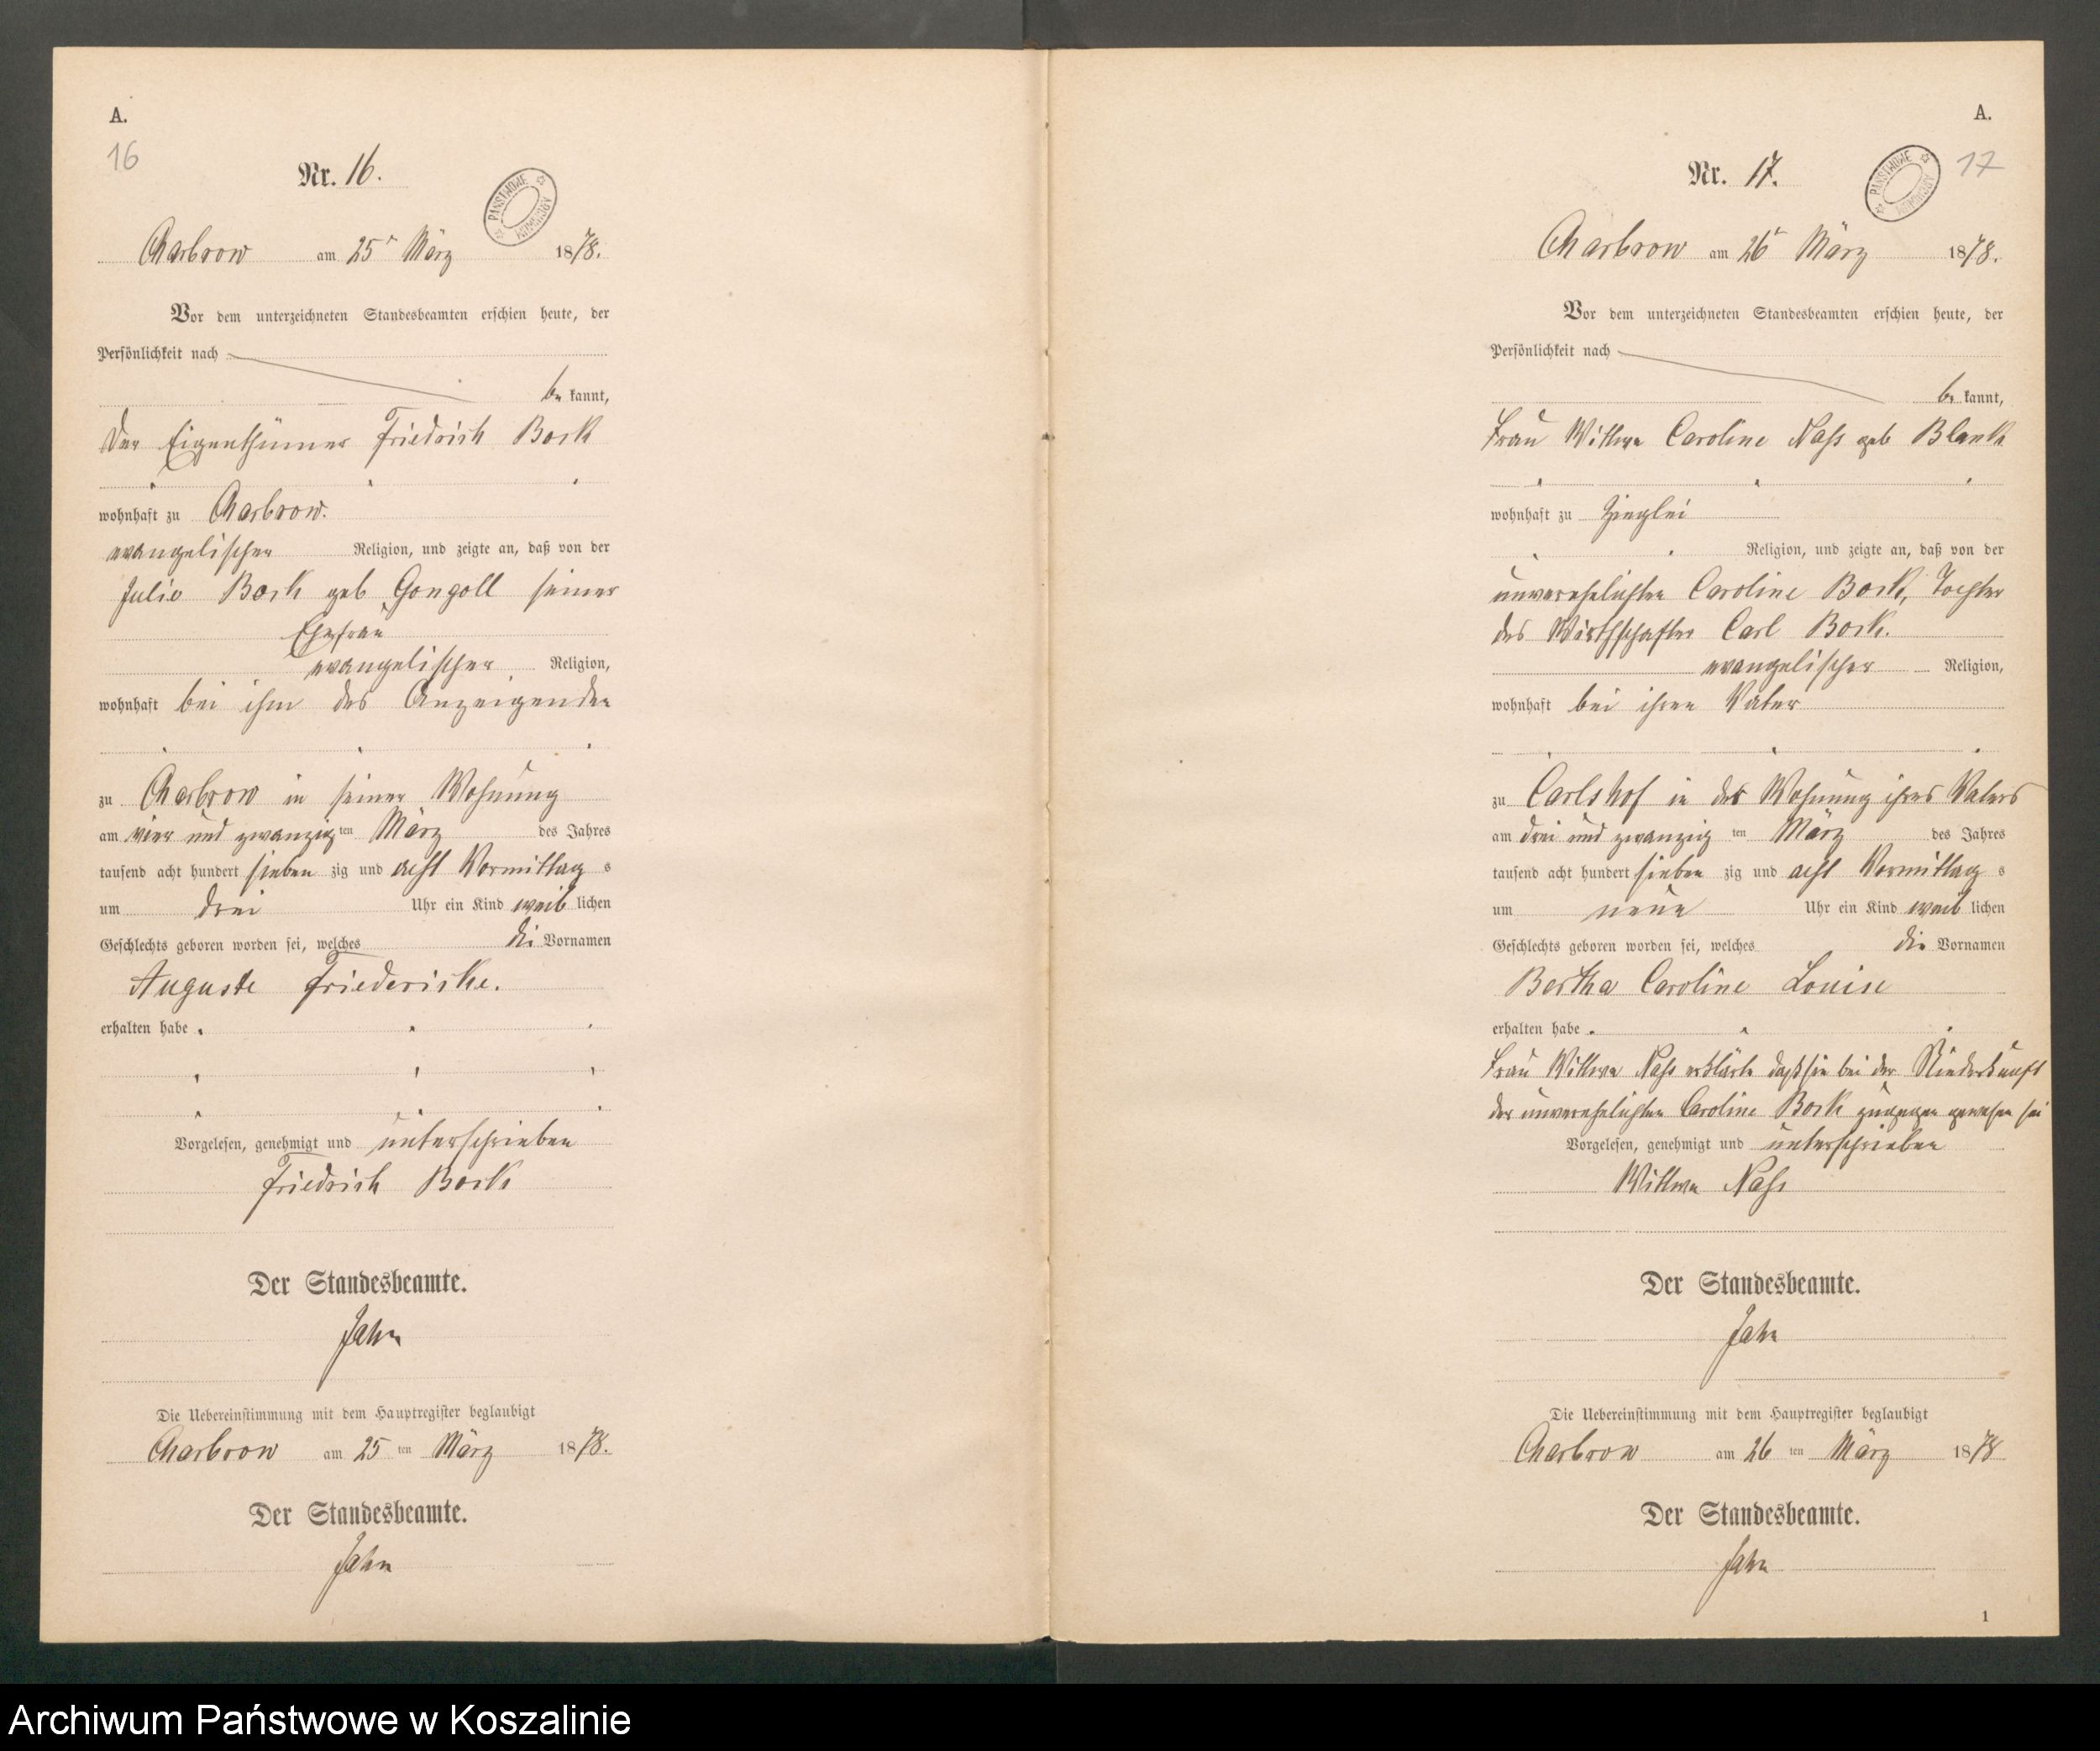 A.
16
Nr. 16.
PAŃSTWOWE ARCHIWUM
Charbrow am 25t März 1878.
Vor dem unterzeichneten Standesbeamten erschien heute, der
Persönlichkeit nach
be kannt,
der Eigenthümer Friedrich Bork
wohnhaft zu Charbrow.
evangelischer Religion, und zeigte an, daß von der
Julie Bork geb Gongoll seiner
Ehefrau
evangelischer Religion,
wohnhaft bei ihm des Anzeigenden
zu Charbrow in seiner Wohnung
am vier und zwanzig ten März des Jahres
tausend acht hundert sieben zig und acht Vormittag s
um drei Uhr ein Kind weib lichen
Geschlechts geboren worden sei, welches die Vornamen
Auguste Friederiske.
erhalten habe
Vorgelesen, genehmigt und unterschrieben
Friedrich Bork
Der Standesbeamte.
Jahn
Die Uebereinstimmung mit dem Hauptregister beglaubigt
Charbrow am 25 ten März 1878.
Der Standesbeamte.
Jahn
A.
17
Nr. 17.
PAŃSTWOWE ARCHIWUM
Charbrow am 26t März 1878.
Vor dem unterzeichneten Standesbeamten erschien heute, der
Persönlichkeit nach
be kannt,
Frau Wittwe Caroline Nass geb Blank
wohnhaft zu Zieglei
Religion, und zeigte an, daß von der
unverehelichten Caroline Bork, Tochter
des Wirthschafter Carl Bork.
evangelischer Religion,
wohnhaft bei ihren Vater
zu Carlshof in der Wohnung ihres Vaters
am drei und zwanzig ten März des Jahres
tausend acht hundert sieben zig und acht Vormittag s
um neun Uhr ein Kind weib lichen
Geschlechts geboren worden sei, welches die Vornamen
Bertha Caroline Louise
erhalten habe
Frau Wittwe Nass erklärte daß sie bei der Niederkunft
der unverehelichten Caroline Bork zugegen gewesen sei
Vorgelesen, genehmigt und unterschrieben
Wittwe Nass
Der Standesbeamte.
Jahn
Die Uebereinstimmung mit dem Hauptregister beglaubigt
Charbrow am 26 ten März 1878
Der Standesbeamte.
Jahn
1
Archiwum Państwowe w Koszalinie